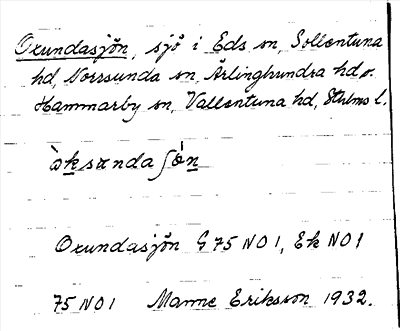 Oxundasjön, sjö i Eds sn, Sollentuna
hd, Norrsunda sn, Ärlinghundra hd o.
Hammarby sn, Vallentuna hd, Sthlms l.
ò̀ksɯnda ʃǿn
Oxundasjön G 75 NO 1, Ek NO 1
75 NO 1 Manne Eriksson 1932.